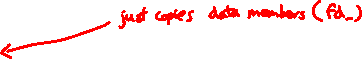 just copies data members (fd_)